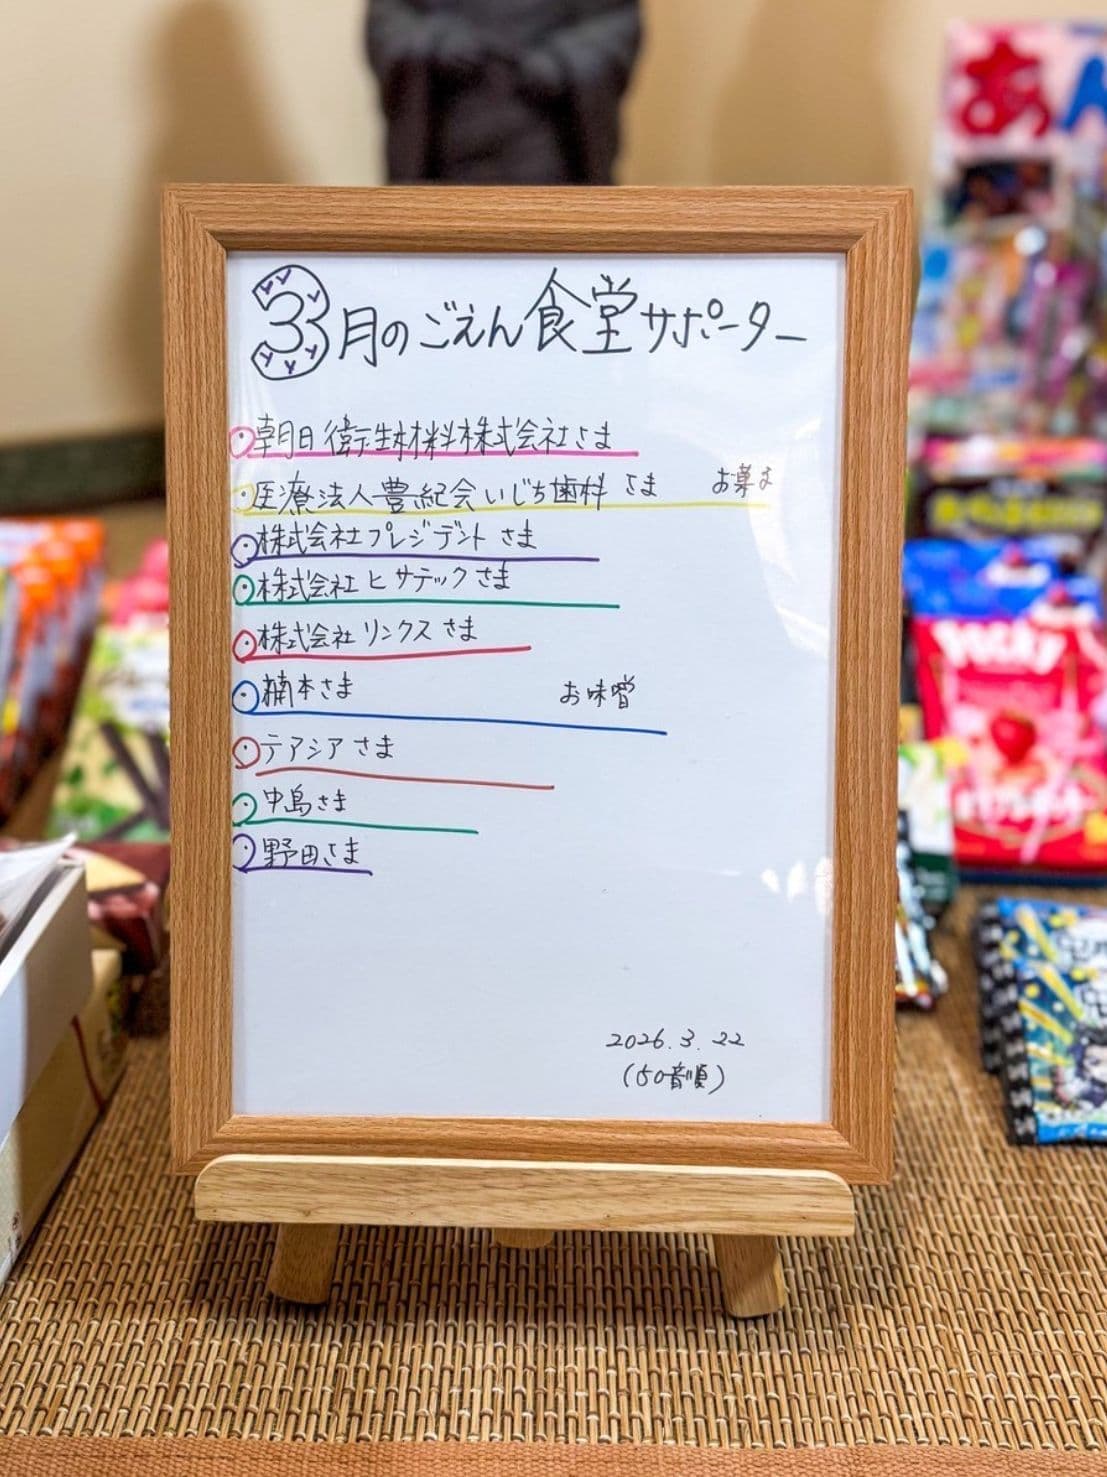 3月のごえん食堂サポーター
朝日衛生材料株式会社さま
医療法人豊紀会いじち歯科 さま
株式会社プレジデント さま
株式会社ヒサテックさま
株式会社リンクス さま
楠本さま お味噌
テアシア さま
中島さま
野田さま
2026.3.22
(50音順)
あ
Pocky